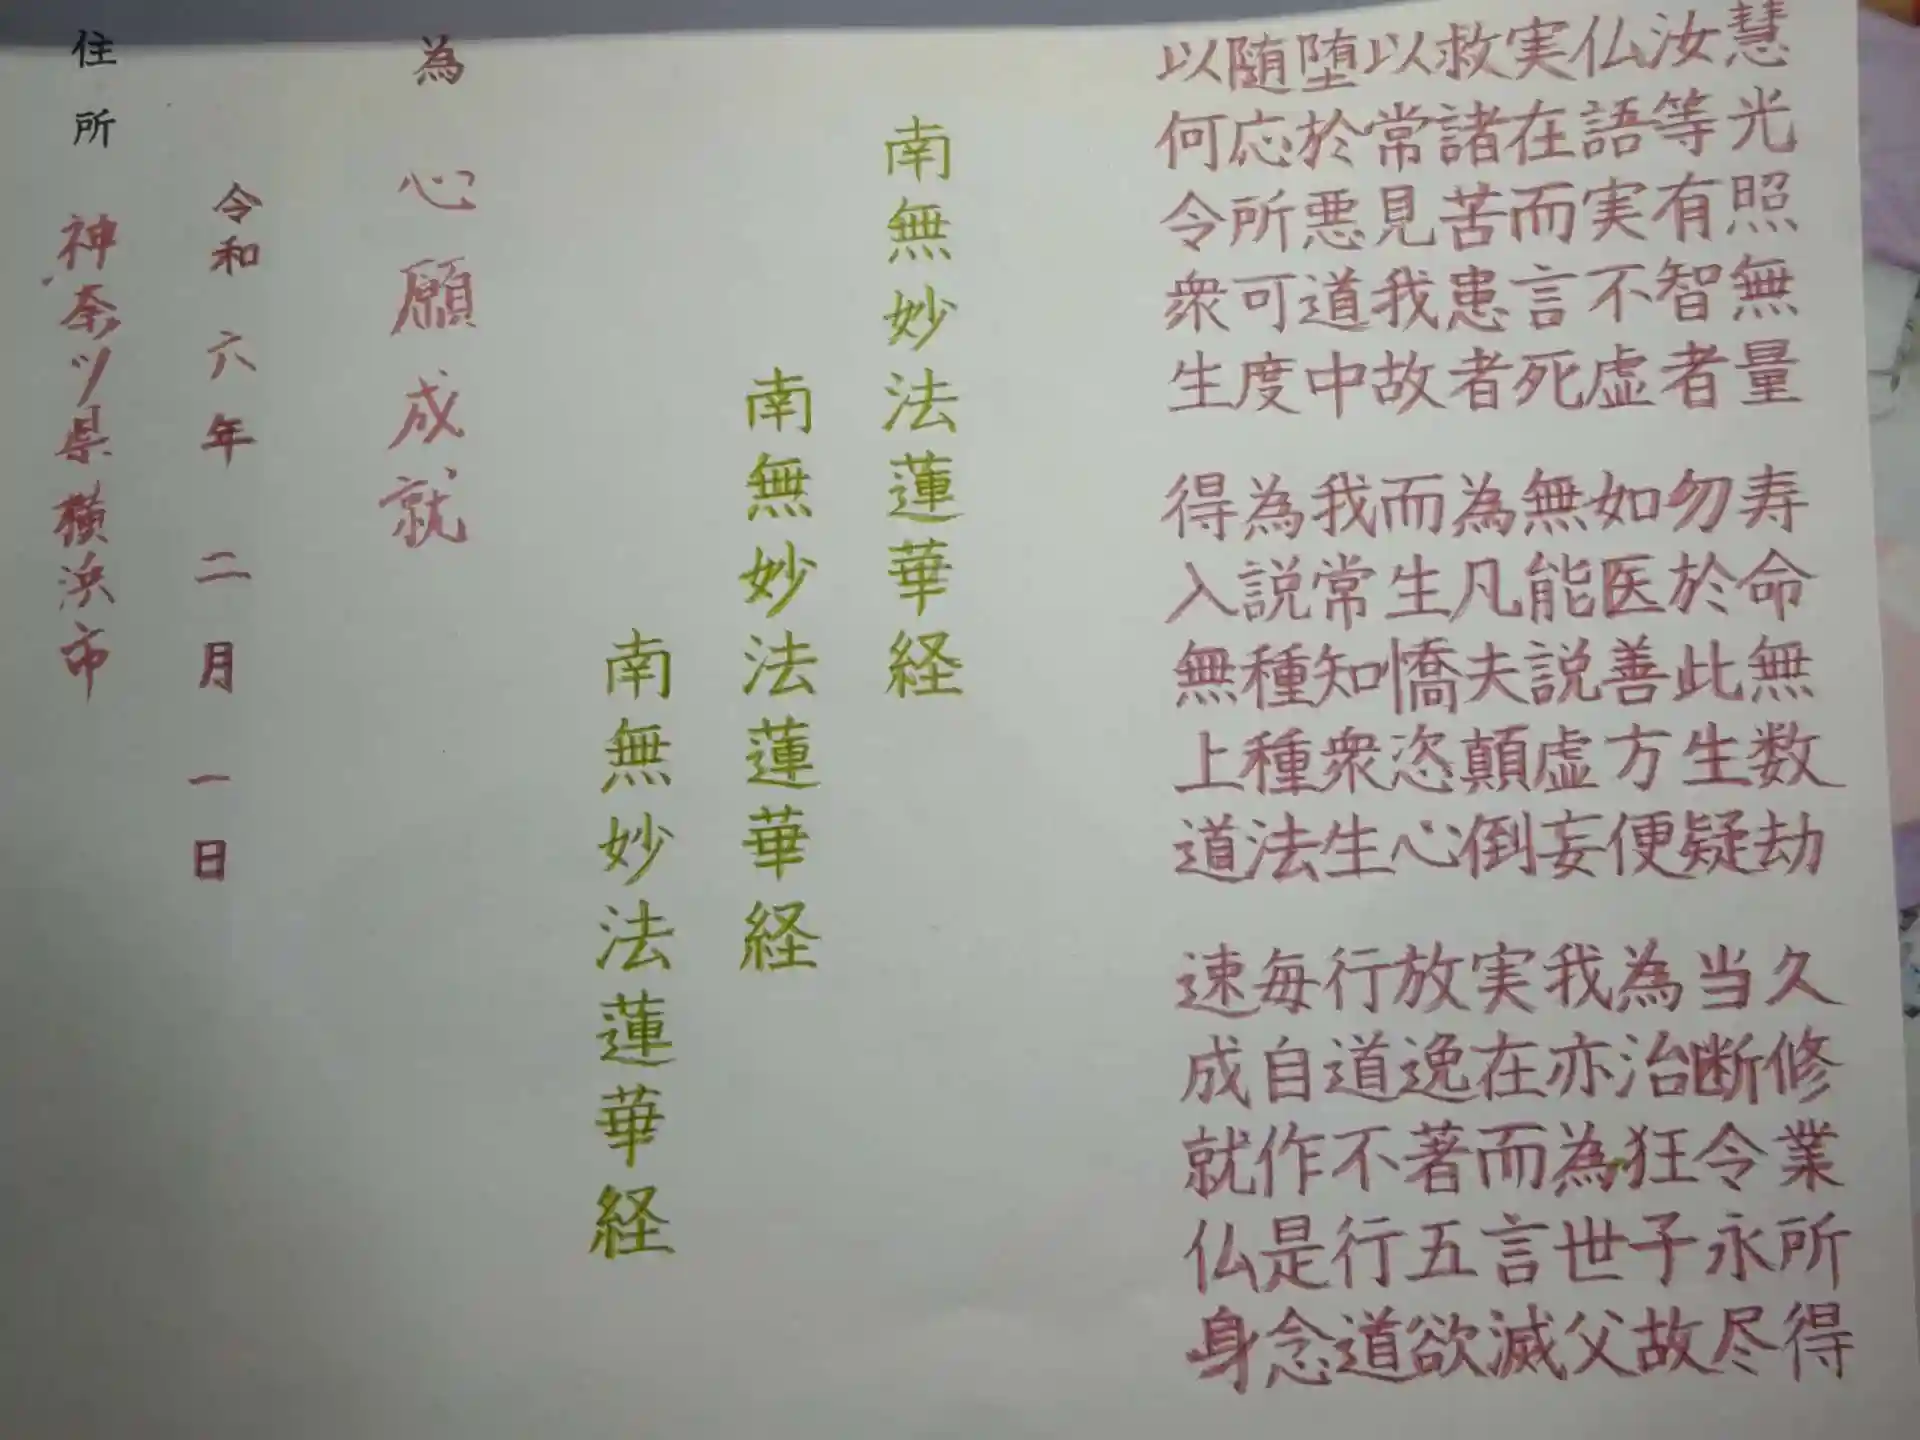 慧光照無量 寿命無数劫 久修業所得
汝等有智者 勿於此生疑 当断令永尽
仏語実不虚 如医善方便 為治狂子故
実在而言死 無能説虚妄 我亦為世父
救諸苦患者 為凡夫顛倒 実在而言滅
以常見我故 而生憍恣心 放逸著五欲
堕於悪道中 我常知衆生 行道不行道
随応所可度 為説種種法 毎自作是念
以何令衆生 得入無上道 速成就仏身
南無妙法蓮華経
南無妙法蓮華経
南無妙法蓮華経
為 心願成就
令和 六年 二月 一日
住所 神奈川県横浜市